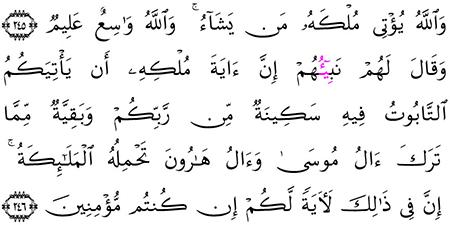 وَاللَّهُ يُؤْتِي مُلْكَهُۥ مَن يَشَآءُۚ وَاللَّهُ وَٰسِعٌ عَلِيمٌ ٢٤٥
وَقَالَ لَهُمْ نَبِيٓـُٔهُمْ إِنَّ ءَايَةَ مُلْكِهِۦٓ أَن يَأْتِيَكُمُ
التَّابُوتُ فِيهِ سَكِينَةٌ مِّن رَّبِّكُمْ وَبَقِيَّةٌ مِّمَّا
تَرَكَ ءَالُ مُوسَىٰ وَءَالُ هَٰرُونَ تَحْمِلُهُ الْمَلَٰٓئِكَةُۚ
إِنَّ فِي ذَٰلِكَ لَأٓيَةً لَّكُمْ إِن كُنتُم مُّؤْمِنِينَ ٢٤٦